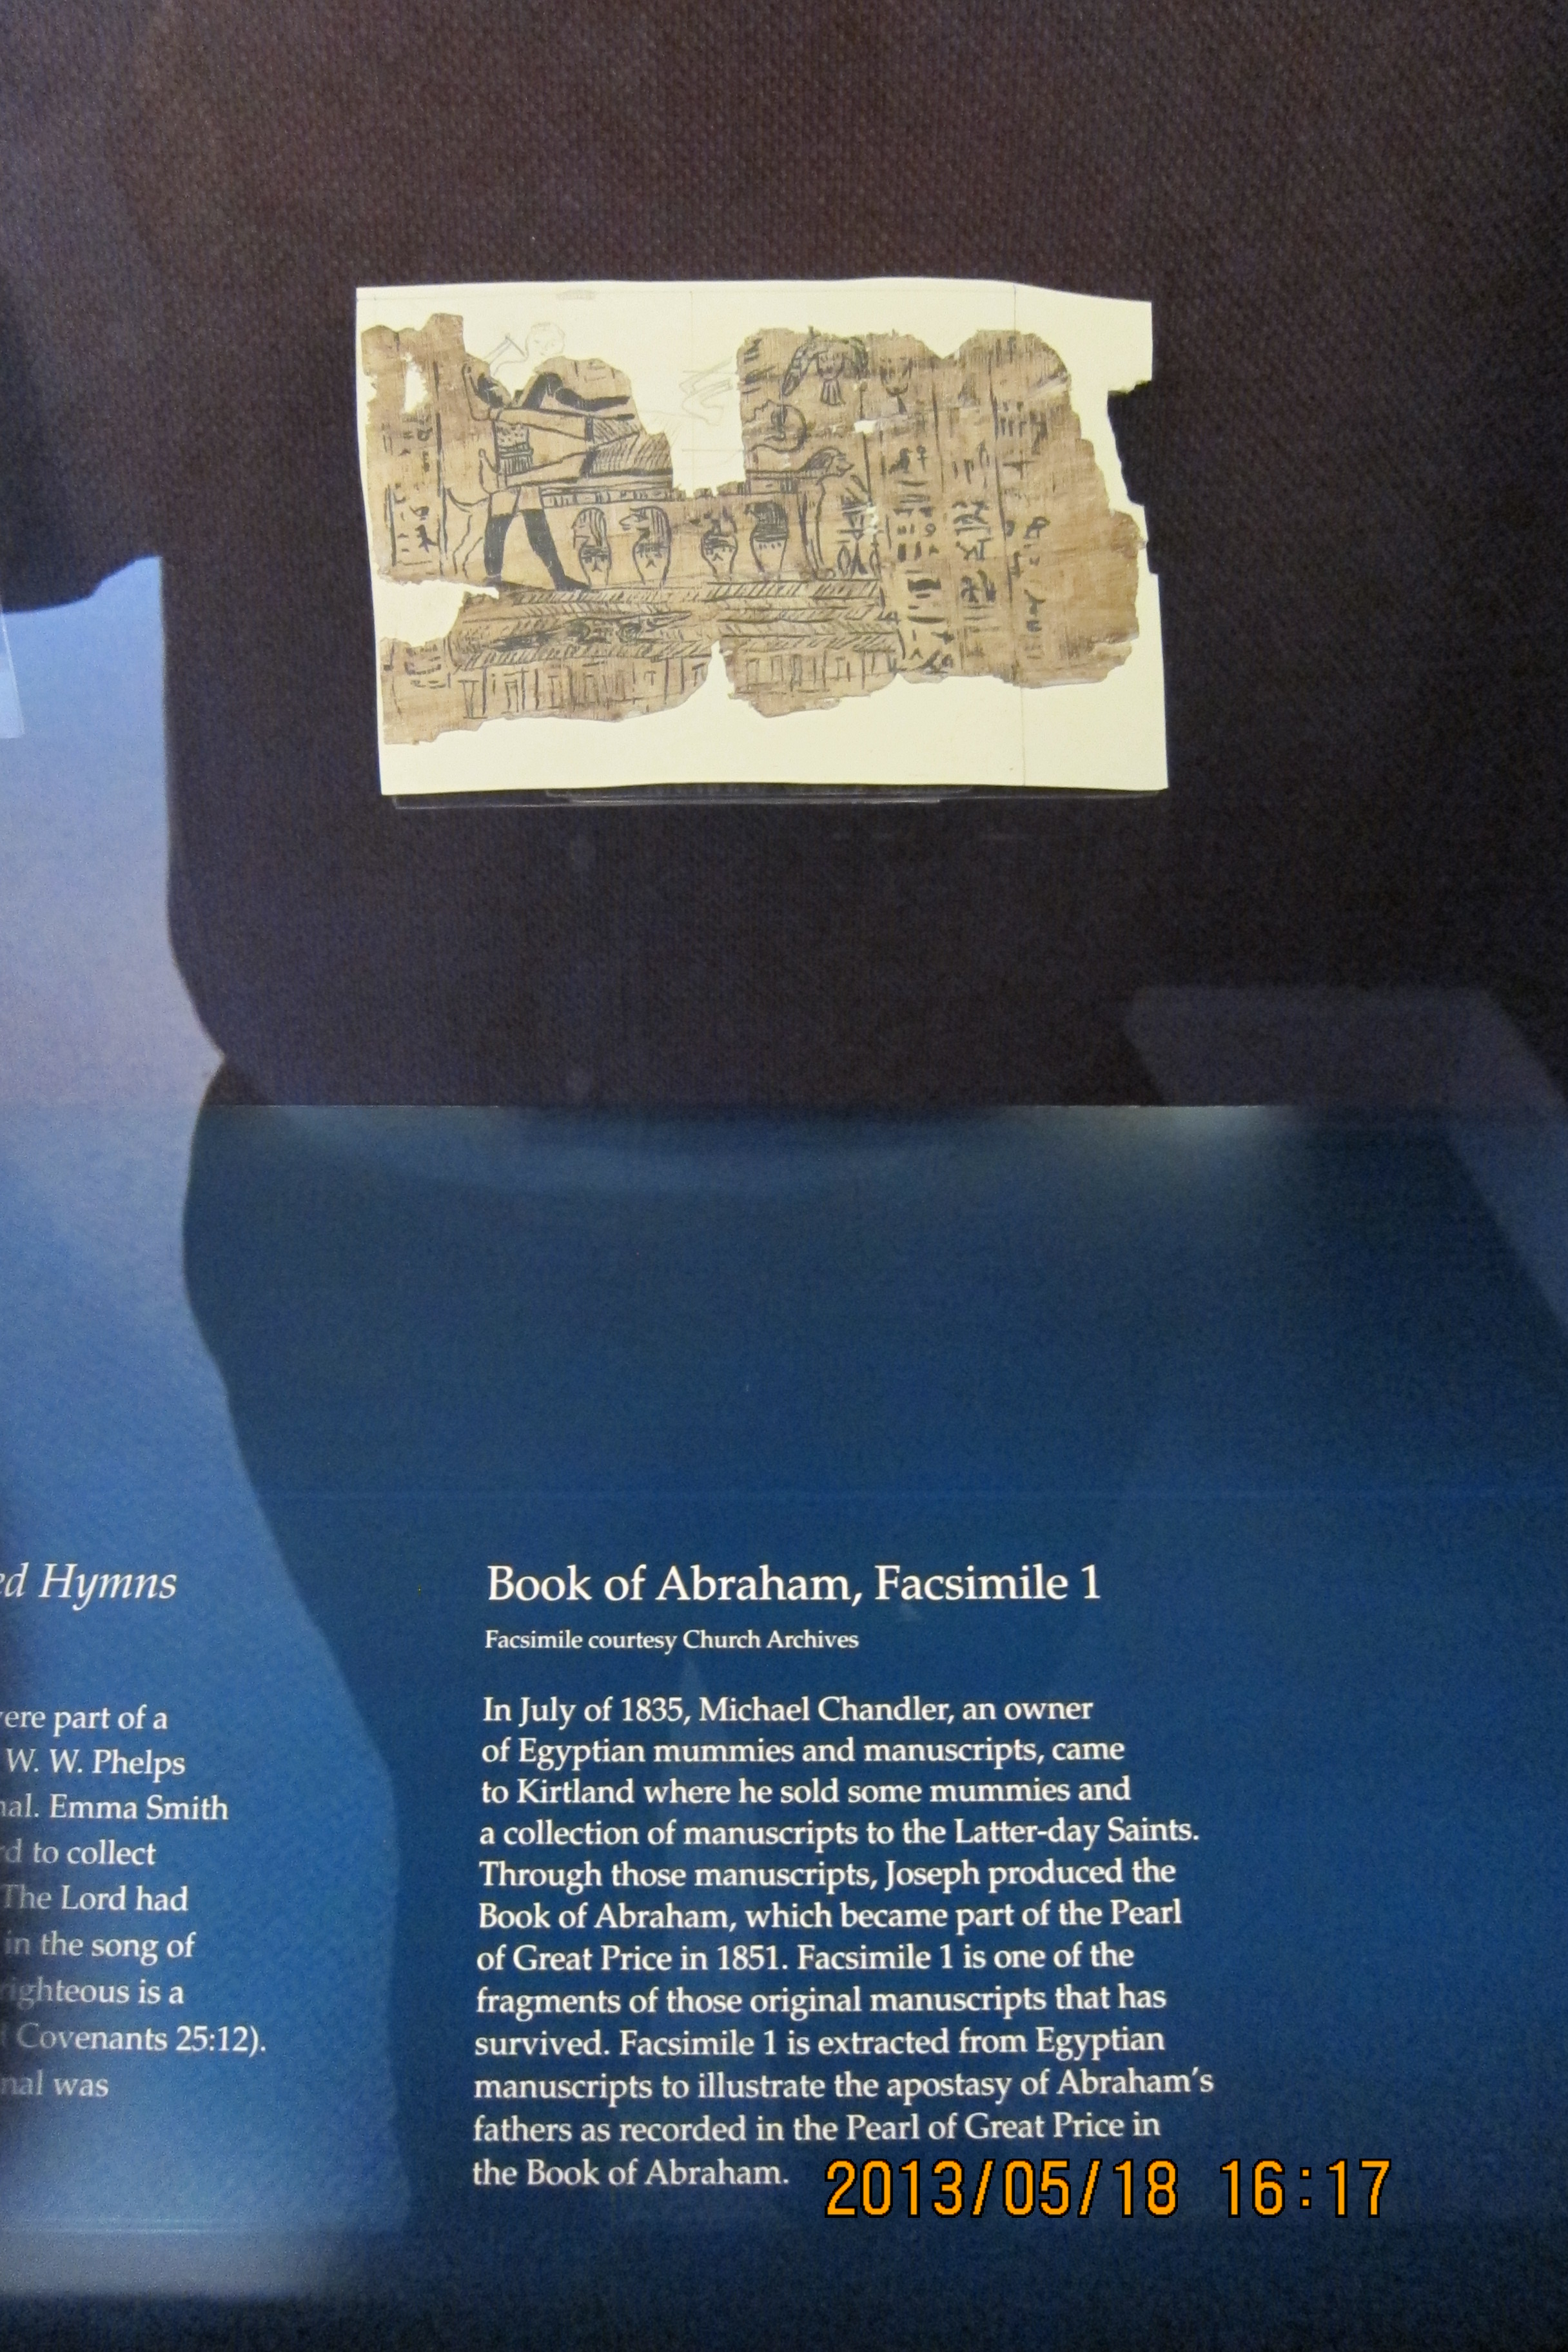 ed Hymns
ere part of a
W. W. Phelps
nal. Emma Smith
d to collect
The Lord had
in the song of
righteous is a
Covenants 25:12).
nal was
Book of Abraham, Facsimile 1
Facsimile courtesy Church Archives
In July of 1835, Michael Chandler, an owner
of Egyptian mummies and manuscripts, came
to Kirtland where he sold some mummies and
a collection of manuscripts to the Latter-day Saints.
Through those manuscripts, Joseph produced the
Book of Abraham, which became part of the Pearl
of Great Price in 1851. Facsimile 1 is one of the
fragments of those original manuscripts that has
survived. Facsimile 1 is extracted from Egyptian
manuscripts to illustrate the apostasy of Abraham's
fathers as recorded in the Pearl of Great Price in
the Book of Abraham.
2013/05/18 16:17